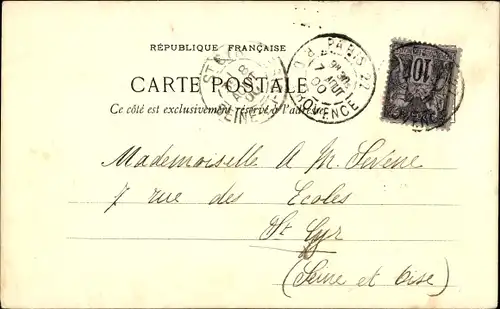 RÉPUBLIQUE FRANÇAISE
CARTE POSTALE
Ce côté est exclusivement réservé à l'adresse
PARIS 22
7 AOUT 00
PROVENCE
10
Mademoiselle A M.
7 rue des Ecoles
St Cyr
(Seine et Oise)